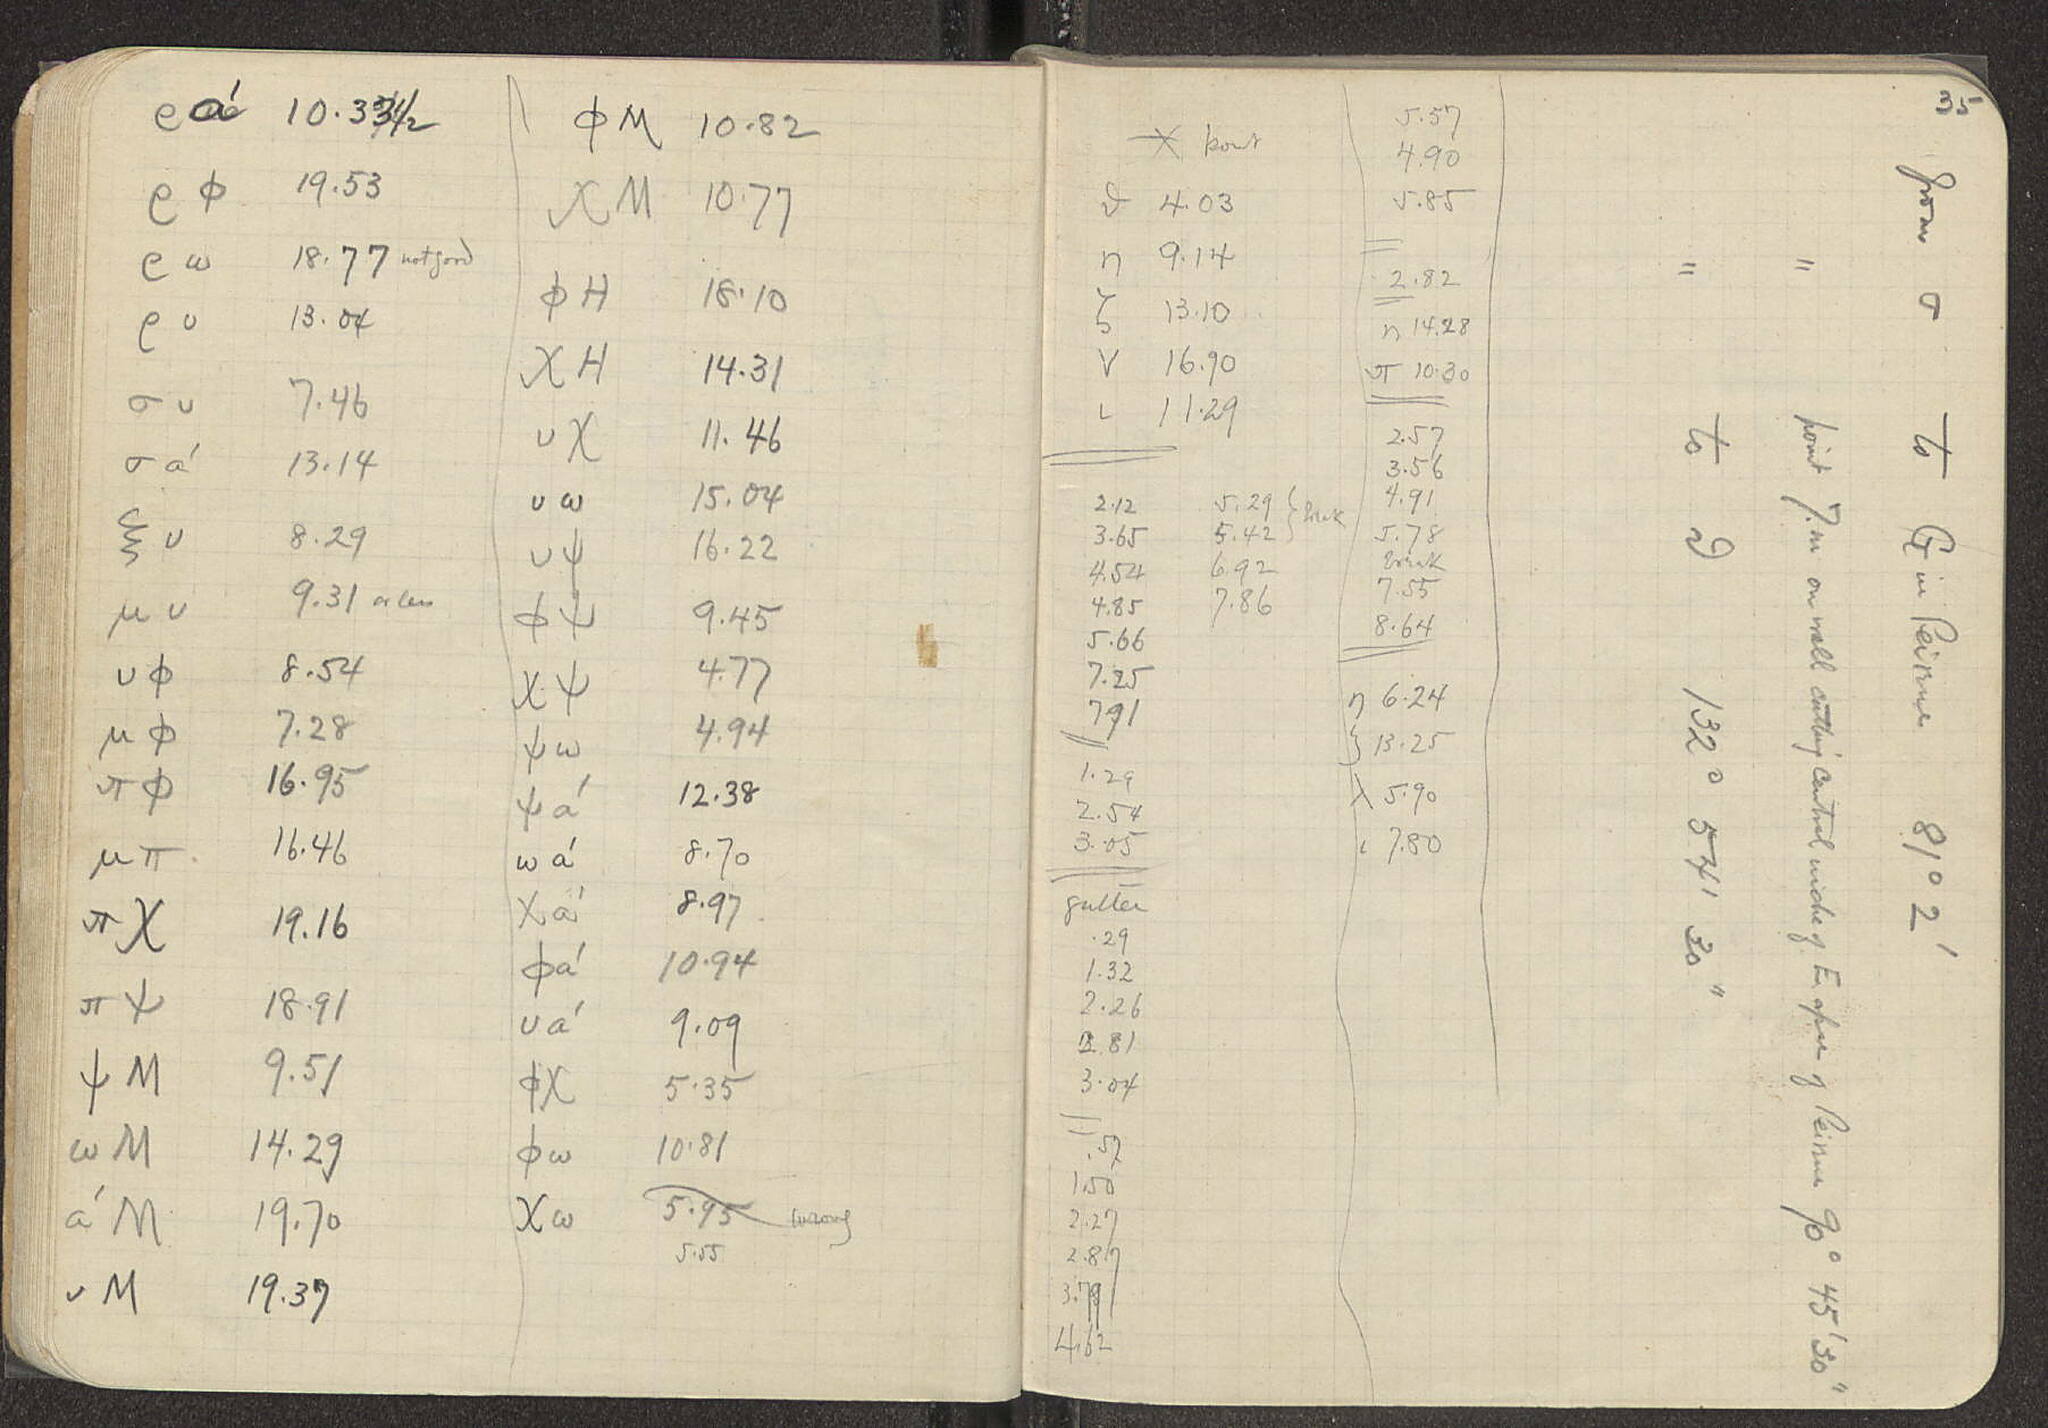 ρ á 10.33½
ρ φ 19.53
ρ ω 18.77 not good
ρ υ 13.04
σ υ 7.46
σ á 13.14
ξ υ 8.29
μ υ 9.31 or less
υ φ 8.54
μ φ 7.28
π φ 16.95
μ π 16.46
π χ 19.16
π ψ 18.91
ψ M 9.51
ω M 14.29
á M 19.70
υ M 19.37
φ M 10.82
χ M 10.77
φ H 18.10
χ H 14.31
υ χ 11.46
υ ω 15.04
υ ψ 16.22
φ ψ 9.45
χ ψ 4.77
ψ ω 4.94
ψ á 12.38
ω á 8.70
χ á 8.97
φ á 10.94
υ á 9.09
φ χ 5.35
φ ω 10.81
χ ω 5.95 wrong
5.55
35
X point
ϑ 4.03
η 9.14
ζ 13.10
V 16.90
ι 11.29
2.12 5.29
3.65 5.42 } break
4.54 6.92
4.85 7.86
5.66
7.25
7.91
1.29
2.54
3.05
gutter
.29
1.32
2.26
2.81
3.04
.57
1.50
2.27
2.87
4.62
5.57
4.90
5.85
2.82
η 14.28
π 10.30
2.57
3.56
4.91
5.78
break
7.55
8.64
η 6.24
ζ 13.25
λ 5.90
ι 7.80
from σ to G in Peirene 81° 2'
" point 7.m on wall cutting central niche of E. apse of Peirene 90° 45' 30"
" to ϑ 132° 54' 30"